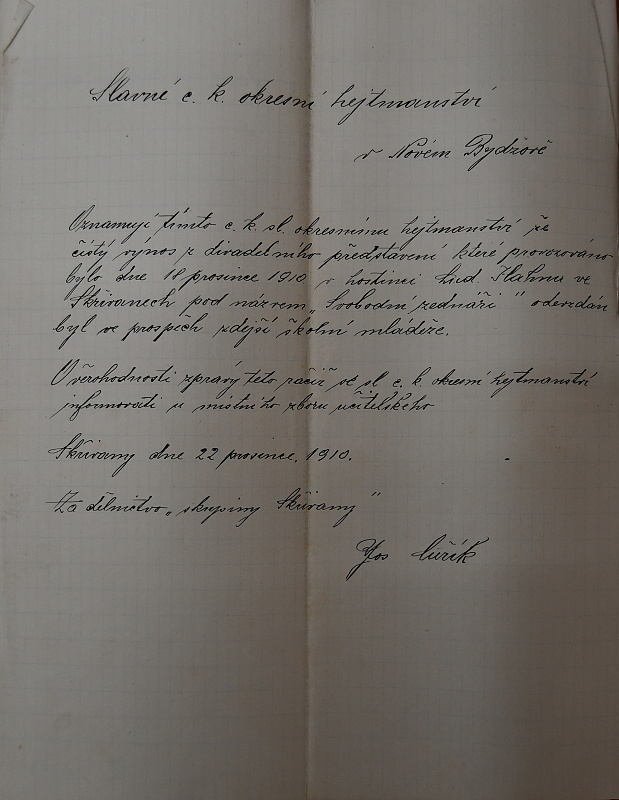 Slavné c. k. okresní hejtmanství
v Novém Bydžově
Oznamuji tímto c. k. sl. okresnímu hejtmanství že
čistý výnos z divadelního představení které provozováno
bylo dne 18 prosince 1910 v hostinci Lud. Hahna ve
Skřivanech pod názvem „Svobodní zednáři" odevzdán
byl ve prospěch zdejší školní mládeže.
O věrohodnosti zprávy této račiž se sl c. k. okresní hejtmanství
informovati u místního zboru učitelského
Skřivany dne 22 prosince. 1910.
Za dělnictvo „skupiny Skřivany"
Jos